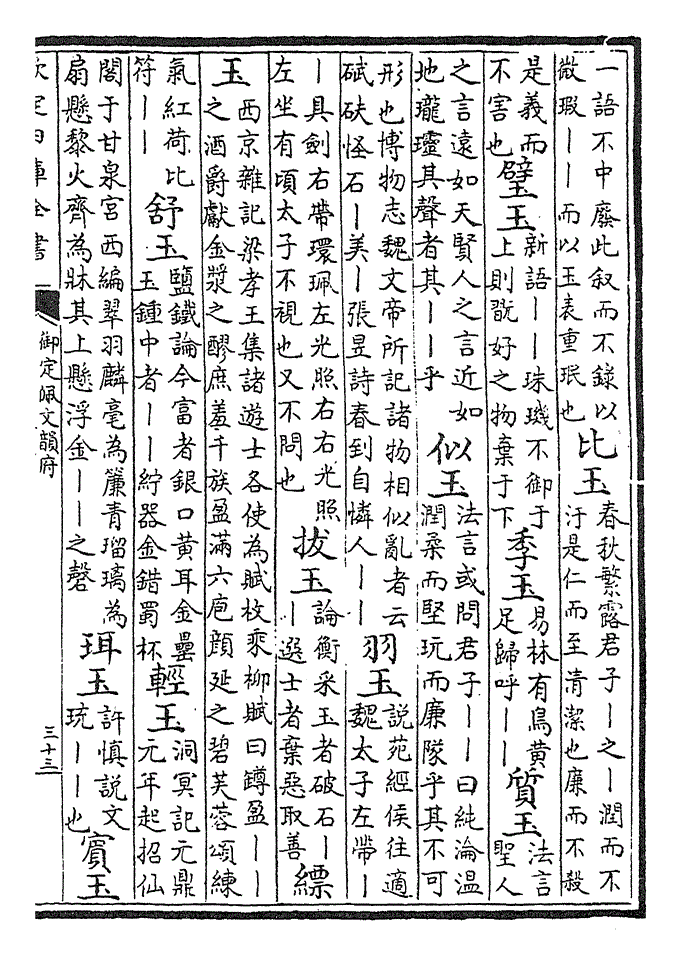 一語不中廢此叙而不錄以
微瑕丨丨而以玉表重珉也
比玉
春秋繁露君子丨之丨潤而不
汙是仁而至清潔也廉而不殺
是義而
不害也
璧玉
新語丨丨珠璣不御于
上則翫好之物棄于下
季玉
易林有鳥黄
足歸呼丨丨
質玉
法言
聖人
之言遠如天賢人之言近如
地瓏璶其聲者其丨丨乎
似玉
法言或問君子丨丨曰純淪温
潤柔而堅玩而廉隊乎其不可
形也博物志魏文帝所記諸物相似亂者云
碔砆怪石丨美丨張昱詩春到自憐人丨丨
羽玉
説苑經侯往適
魏太子左帶丨
丨具劍右帶環珮左光照右右光照
左坐有頃太子不視也又不問也
拔玉
論衡采玉者破石丨
丨選士者棄惡取善
縹
玉
西京雜記梁孝王集諸遊士各使為賦枚乘柳賦曰鐏盈丨丨
之酒爵獻金漿之醪庶羞千族盈滿六庖顔延之碧芙蓉頌練
氣紅荷比
符丨丨
舒玉
鹽鐵論今富者銀口黄耳金罍
玉鍾中者丨丨紵器金錯蜀杯
輕玉
洞冥記元鼎
元年起招仙
閣于甘泉宫西編翠羽麟毫為簾青瑠璃為
扇懸黎火齊為牀其上懸浮金丨丨之磬
珥玉
許慎説文
珫丨丨也
賔玉
欽定四庫全書
御定佩文韻府
三十三